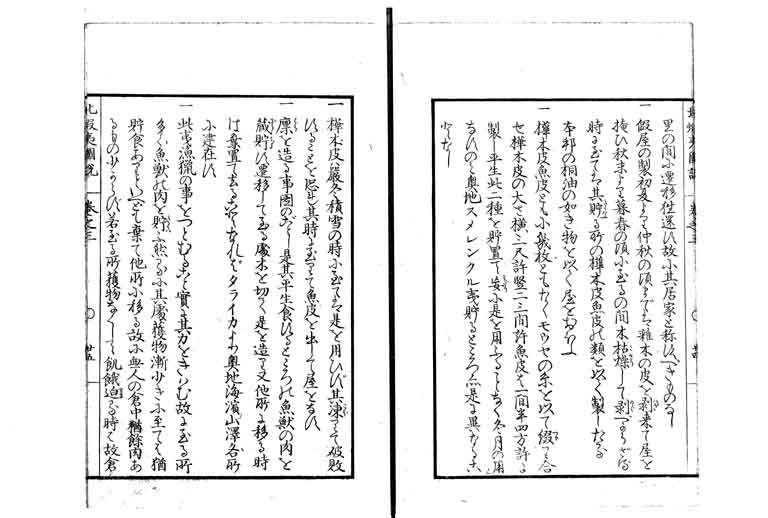 里の間に遷移往還す故に其居家と称すべきものなし
一 假屋の製初夏より仲秋の頃までは雜木の皮を剥来て屋を
掩ひ秋末より暮春の頃に至るの間木枯槁して剥べからざる
時に至ては其貯る所の樺木皮魚皮の類を以て製しなせる
本邦の桐油の如き物を以て屋となせり
一 樺木皮魚皮とも小幾枚ともなくモウセの糸を以て綴り合
せ樺木皮の大さ横二三尺許竪二三間許魚皮は一間半四方許に
製し平生此二種を貯置て妄に是を用ふることなく冬月の用
となすのみ奥地スメレンクル夷貯るところ亦是に異なること
なし
一 樺木皮は嚴冬積雪の時に至ては是を用ひず其凍りて破敗
することを恐る其時に至りては魚皮を出して屋となす
一 廩を造る事圖のごとし是其平生食するところの魚獸の肉を
藏貯す遷移して至る處木を切て是を造り又他所に移る時
は棄置て去ることなれどタライカより奥地海濱山澤各所
に連在す
一 此夷漁獵の事をつとむること實に其力をきはむ故に至る所
多く魚獸の肉を貯ふ然るに其處獲物漸少きに至ては猶
貯食あるといへども棄て他所に移る故に無人の倉中猶餘肉あ
るもの少からず若至る所獲物なくして飢餓迫る時は故倉
北蝦夷圖説 卷之三 〇 廿五